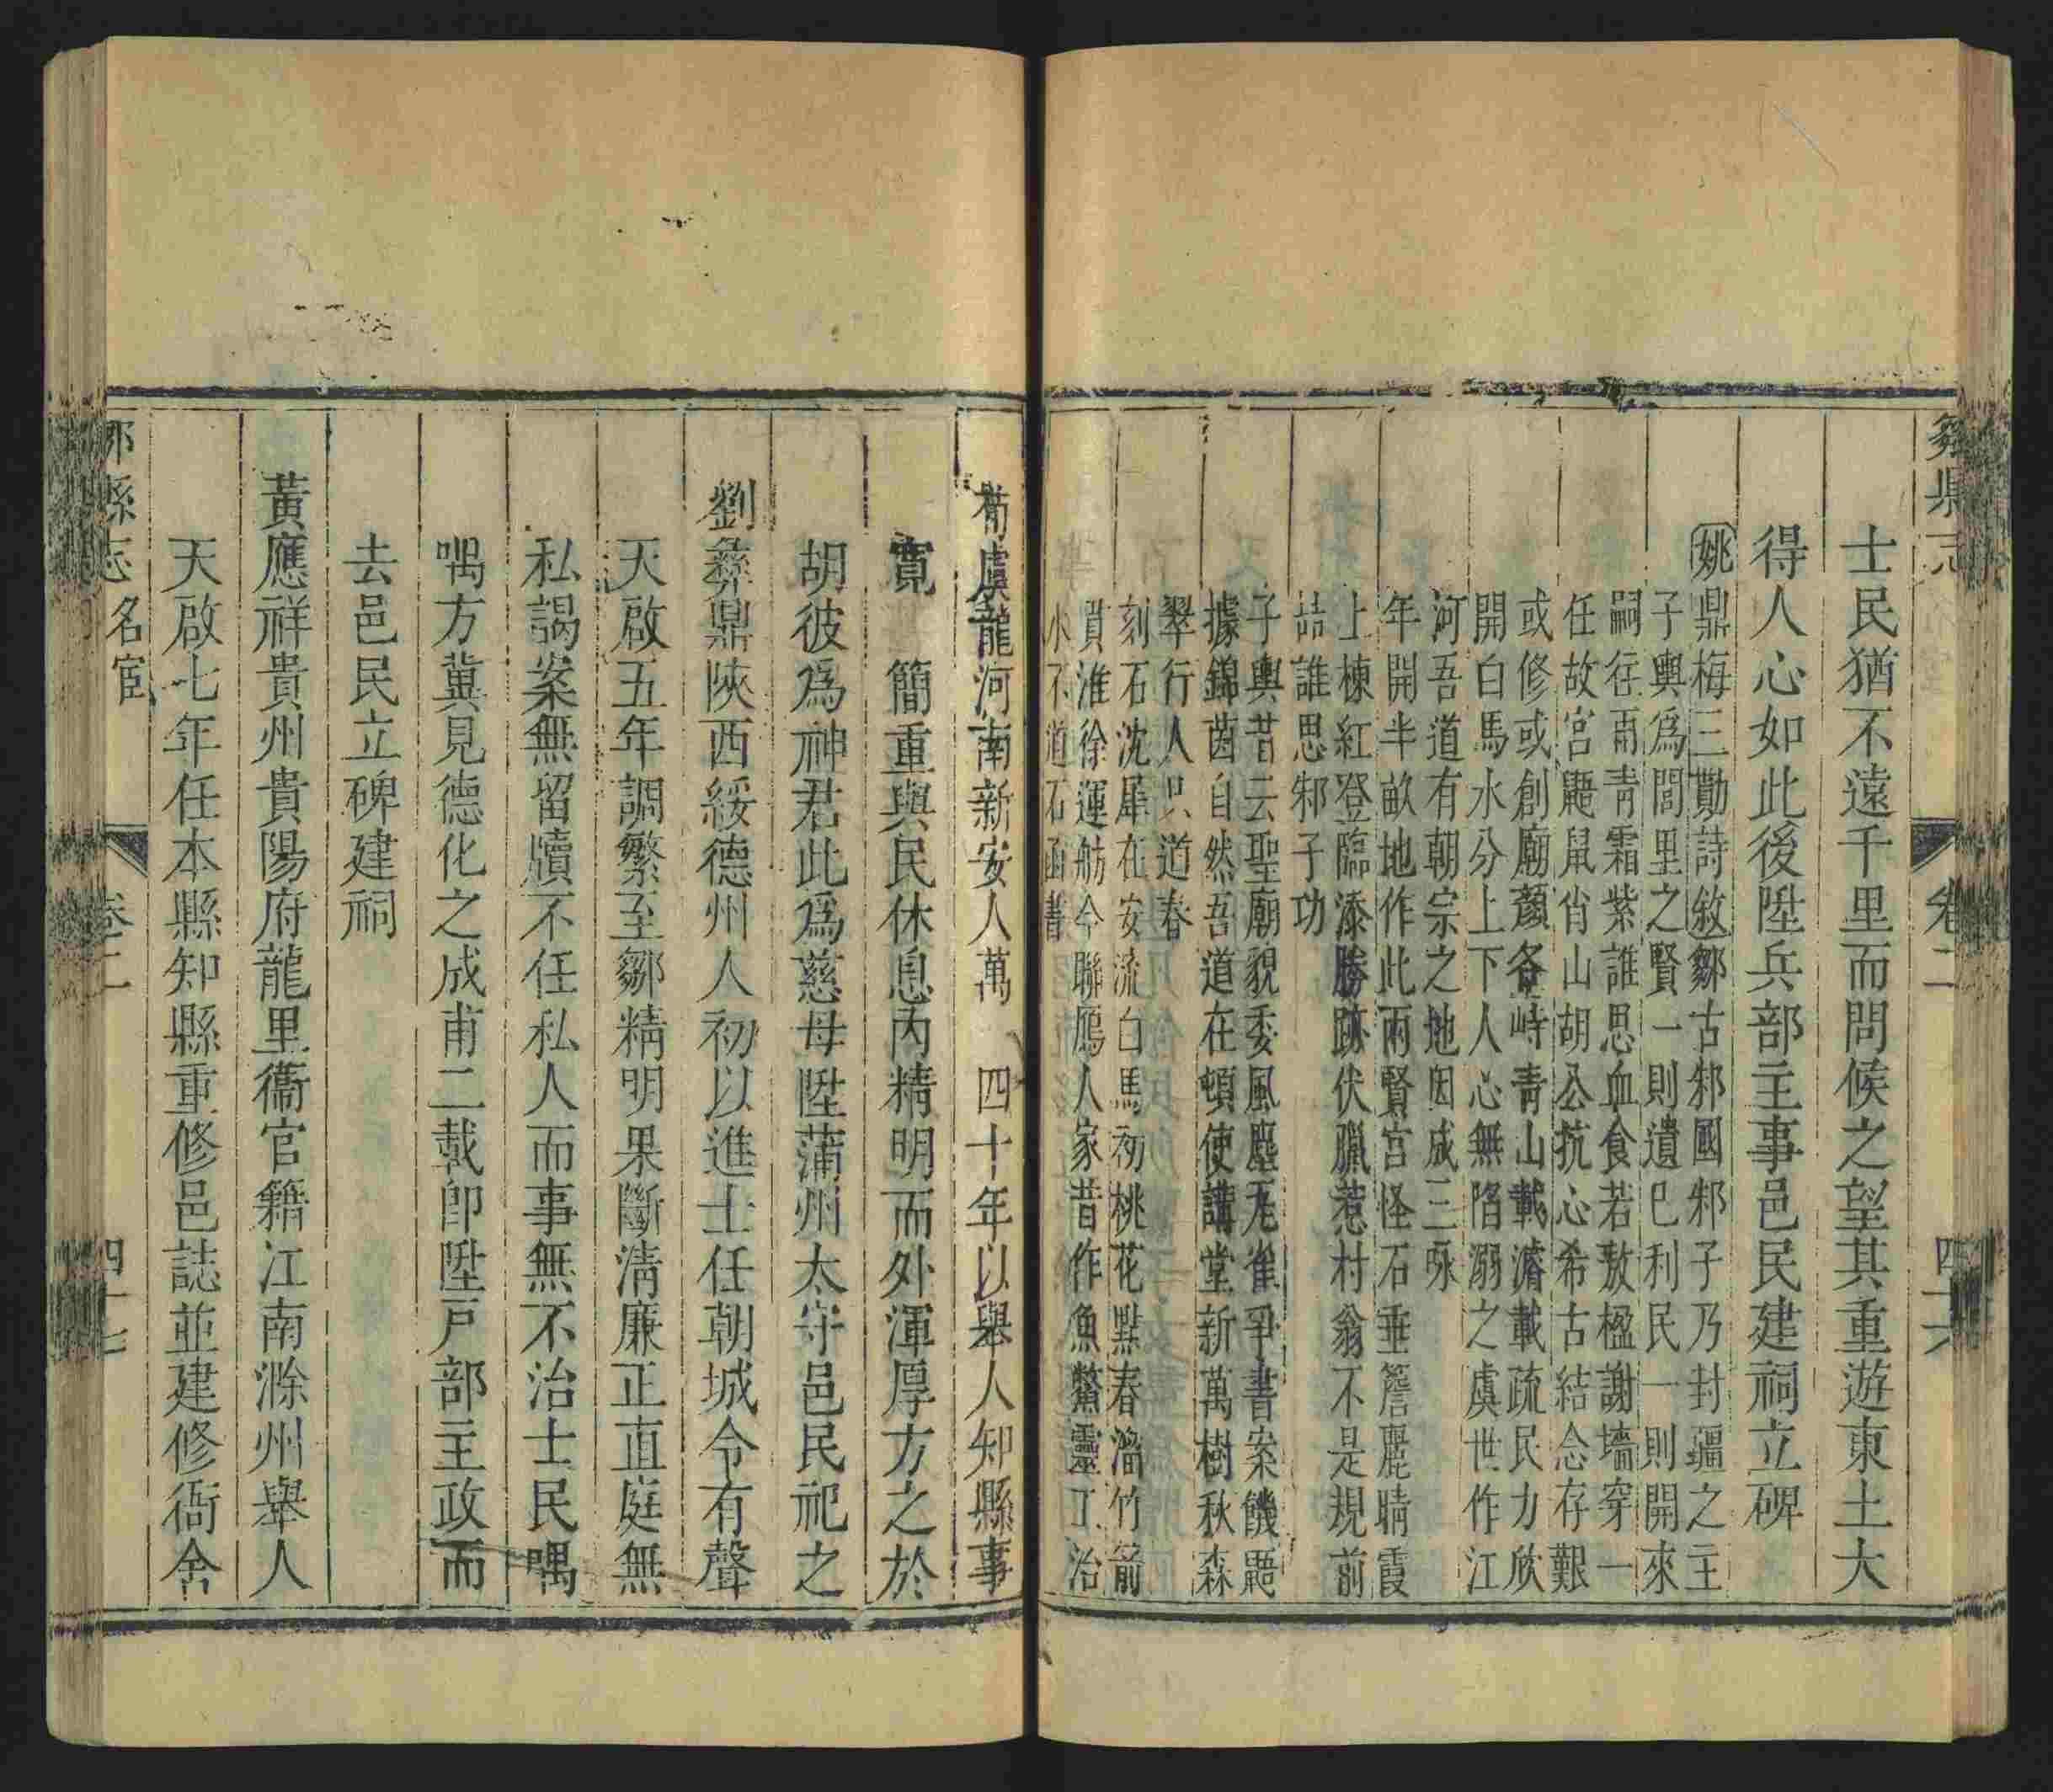 鄒縣志
卷二
四十六
士民猶不遠千里而問候之望其重遊東土大
得人心如此後陞兵部主事邑民建祠立碑
姚鼎梅三勤詩敘鄒古邾國邾子乃封疆之主
子輿爲閭里之賢一則遺巳利民一則開來
嗣徃雨青霜紫誰思血食若敖楹謝墻穿一
任故宮鼯鼠肖山胡公抗心希古結念存艱
或修或創廟顏峰峙青山載濬載疏民力欣
開白馬水分上下人心無陷溺之虞世作江
河吾道有朝宗之地因成三咏
年開半畝地作此兩賢宮怪石垂簷麗晴霞
上棟紅登臨漆勝跡伏臘惹村翁不是規前
喆誰思邾子功
子輿昔云聖廟貌委風塵尨雀爭書案饑鼯
據錦茵自然吾道在頓使講堂新萬樹秋森
翠行人只道春
刻石沈犀在安流白馬初桃花點春溜竹箭
貫淮徐運舫今聯鴈人家昔作魚鱉靈丁治
水不道石函書
荀虞龍河南新安人萬 四十年以舉人知縣事
寬 簡重與民休息內精明而外渾厚方之於
胡彼爲神君此爲慈母陞蒲州太守邑民祀之
劉彝鼎陝西綏德州人初以進士任朝城令有聲
天啟五年調繁至鄒精明果斷清廉正直庭無
私謁案無留牘不任私人而事無不治士民喁
喁方冀見德化之成甫二載卽陞戸部主政而
去邑民立碑建祠
黃應祥貴州貴陽府龍里衞官籍江南滁州舉人
天啟七年任本縣知縣重修邑誌並建修衙舍
鄒縣志 名宦
卷二
四十七